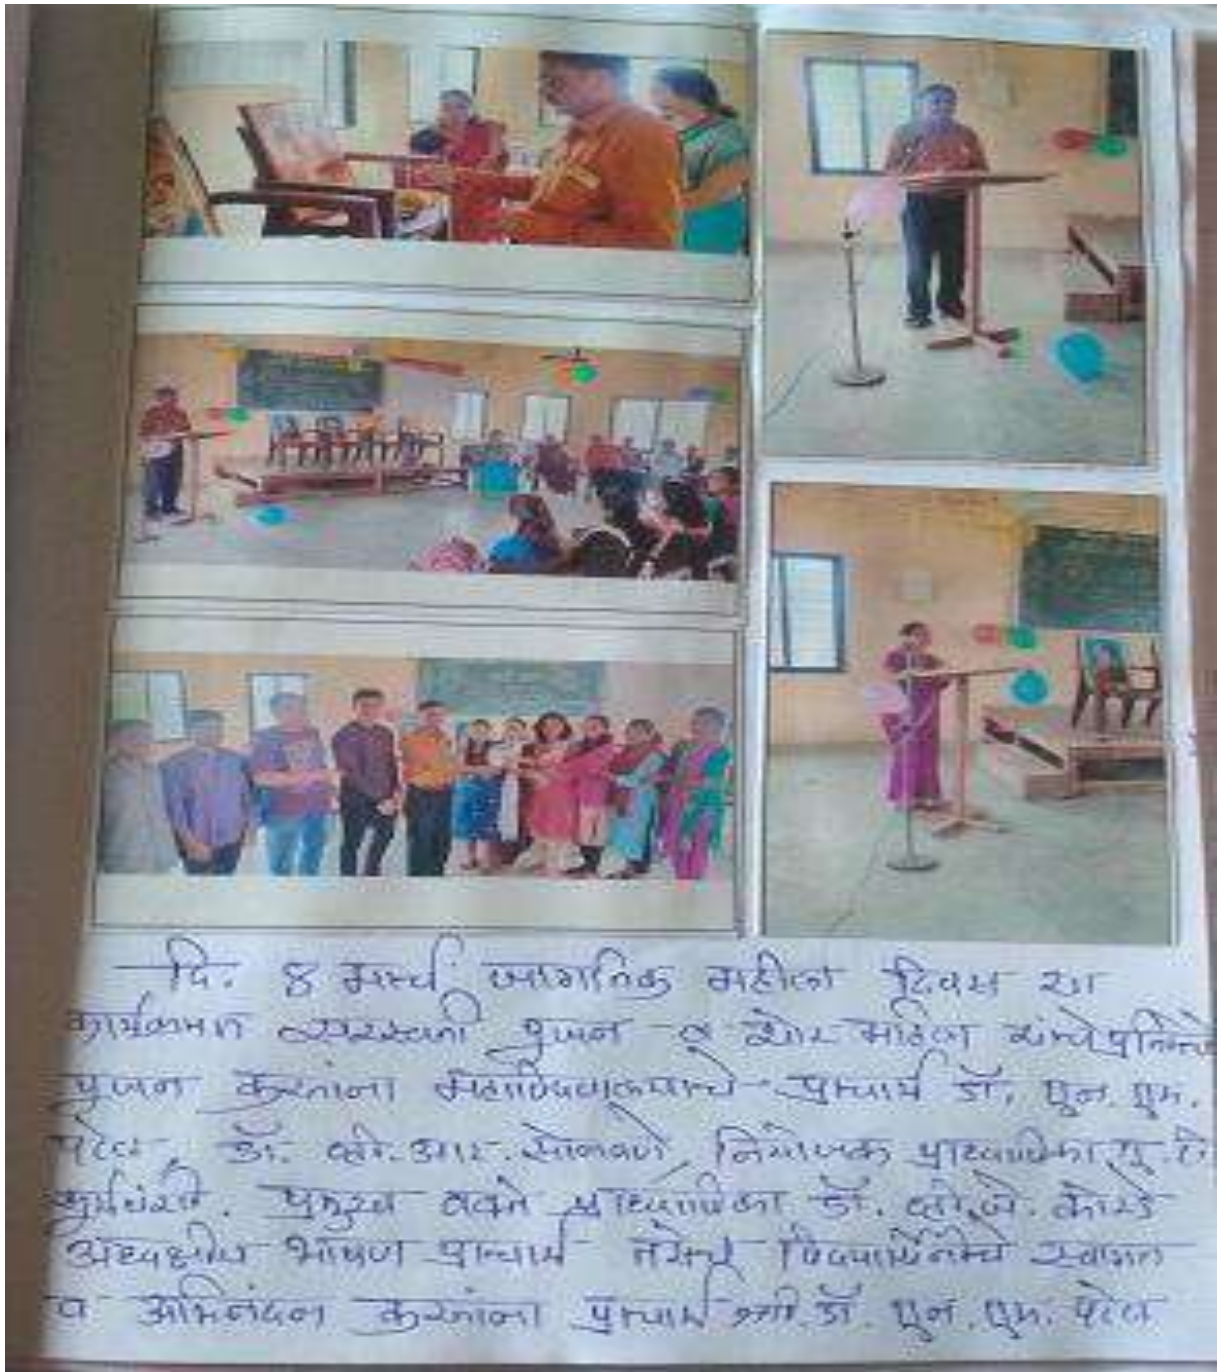 दि. 8 मार्च जागतिक महीला दिवस या
कार्यक्रमात सरस्वती पुजन व थोर महिला
पुजन करतांना महाविद्यालयाचे प्राचार्य डॉ. एन. एम.
पटेल, डॉ. व्ही. आर. सोनवणे, नियोजक प्राध्यापिका
प्रमुख वक्ते प्राध्यापिका डॉ. व्ही. जे.
अध्यक्षीय भाषण प्राचार्य तसेच विद्यार्थीनींचे स्वागत
व अभिनंदन करतांना प्राचार्य श्री. डॉ. एन. एम. पटेल